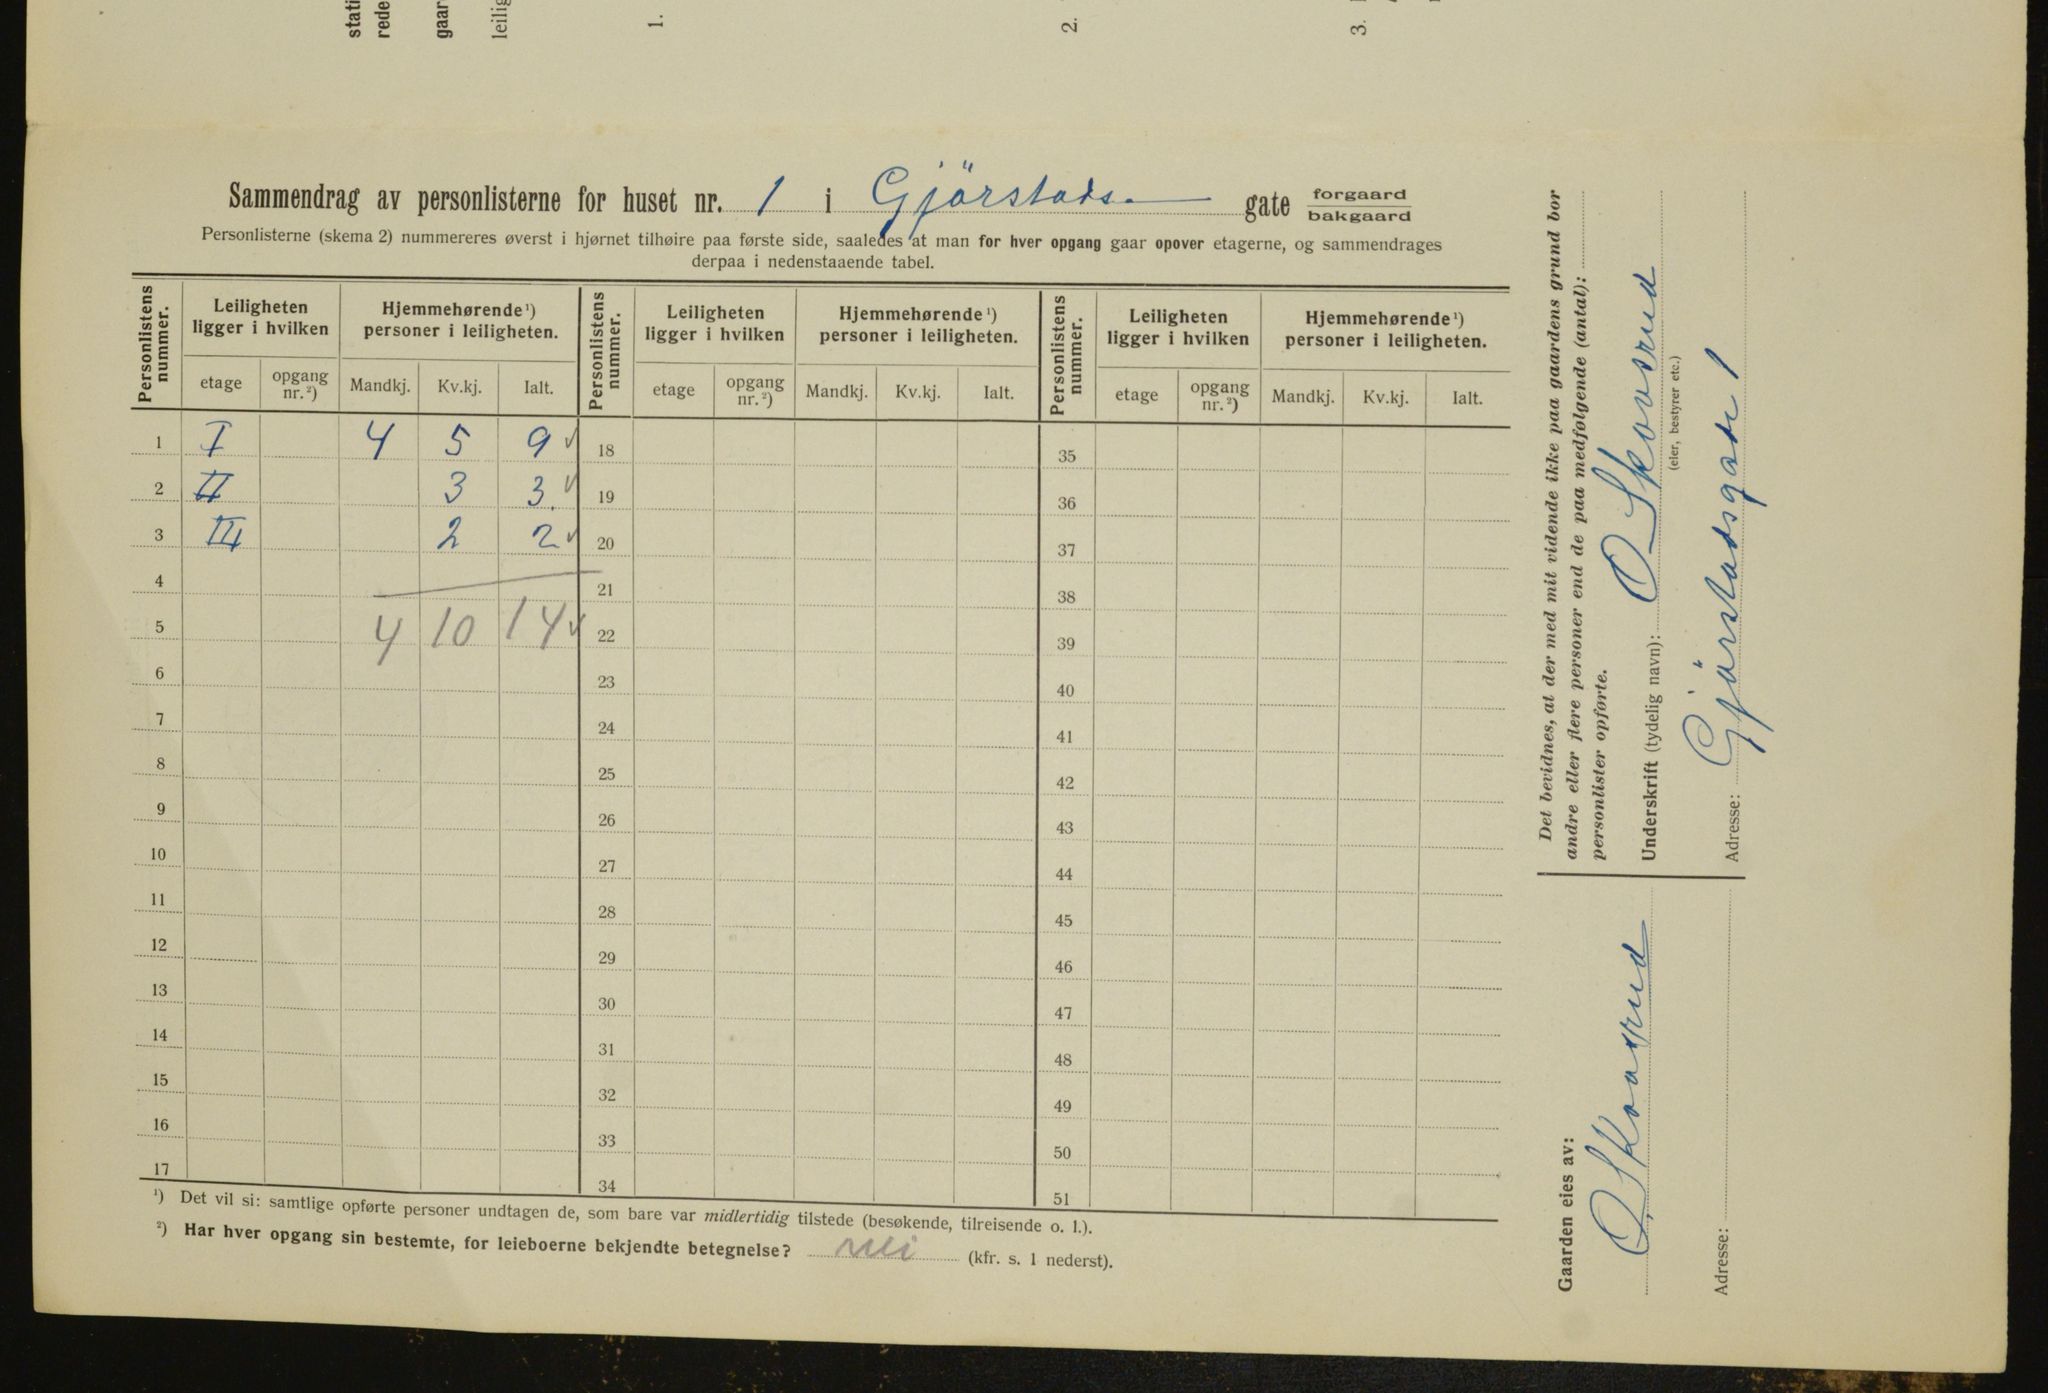 stati
rede
gaar
leilig
1.
2.
3.
Sammendrag av personlisterne for huset nr. 1 i Gjörstads. gate forgaard
bakgaard
Personlisterne (skema 2) nummereres øverst i hjørnet tilhøire paa første side, saaledes at man for hver opgang gaar opover etagerne, og sammendrages
derpaa i nedenstaaende tabel.
Personlistens nummer. Leiligheten ligger i hvilken Hjemmehørende ¹) personer i leiligheten. Personlistens nummer. Leiligheten ligger i hvilken Hjemmehørende ¹) personer i leiligheten. Personlistens nummer. Leiligheten ligger i hvilken Hjemmehørende ¹) personer i leiligheten.
etage opgang nr. ²) Mandkj. Kv.kj. Ialt. etage opgang nr. ²) Mandkj. Kv.kj. Ialt. etage opgang nr. ²) Mandkj. Kv.kj. Ialt.
1 I 4 5 9 ✓ 18 35
2 II 3 3. ✓ 19 36
3 III 2 2 ✓ 20 37
4 21 38
5 4 10 14 ✓ 22 39
6 23 40
7 24 41
8 25 42
9 26 43
10 27 44
11 28 45
12 29 46
13 30 47
14 31 48
15 32 49
16 33 50
17 34 51
¹) Det vil si: samtlige opførte personer undtagen de, som bare var midlertidig tilstede (besøkende, tilreisende o. l.).
²) Har hver opgang sin bestemte, for leieboerne bekjendte betegnelse? nei (kfr. s. 1 nederst).
Det bevidnes, at der med mit vidende ikke paa gaardens grund bor
andre eller flere personer end de paa medfølgende (antal):
personlister opførte.
Underskrift (tydelig navn): O Skovsrud
(eier, bestyrer etc.)
Adresse: Gjörstadsgate 1
Gaarden eies av:
O. Skovsrud
Adresse: